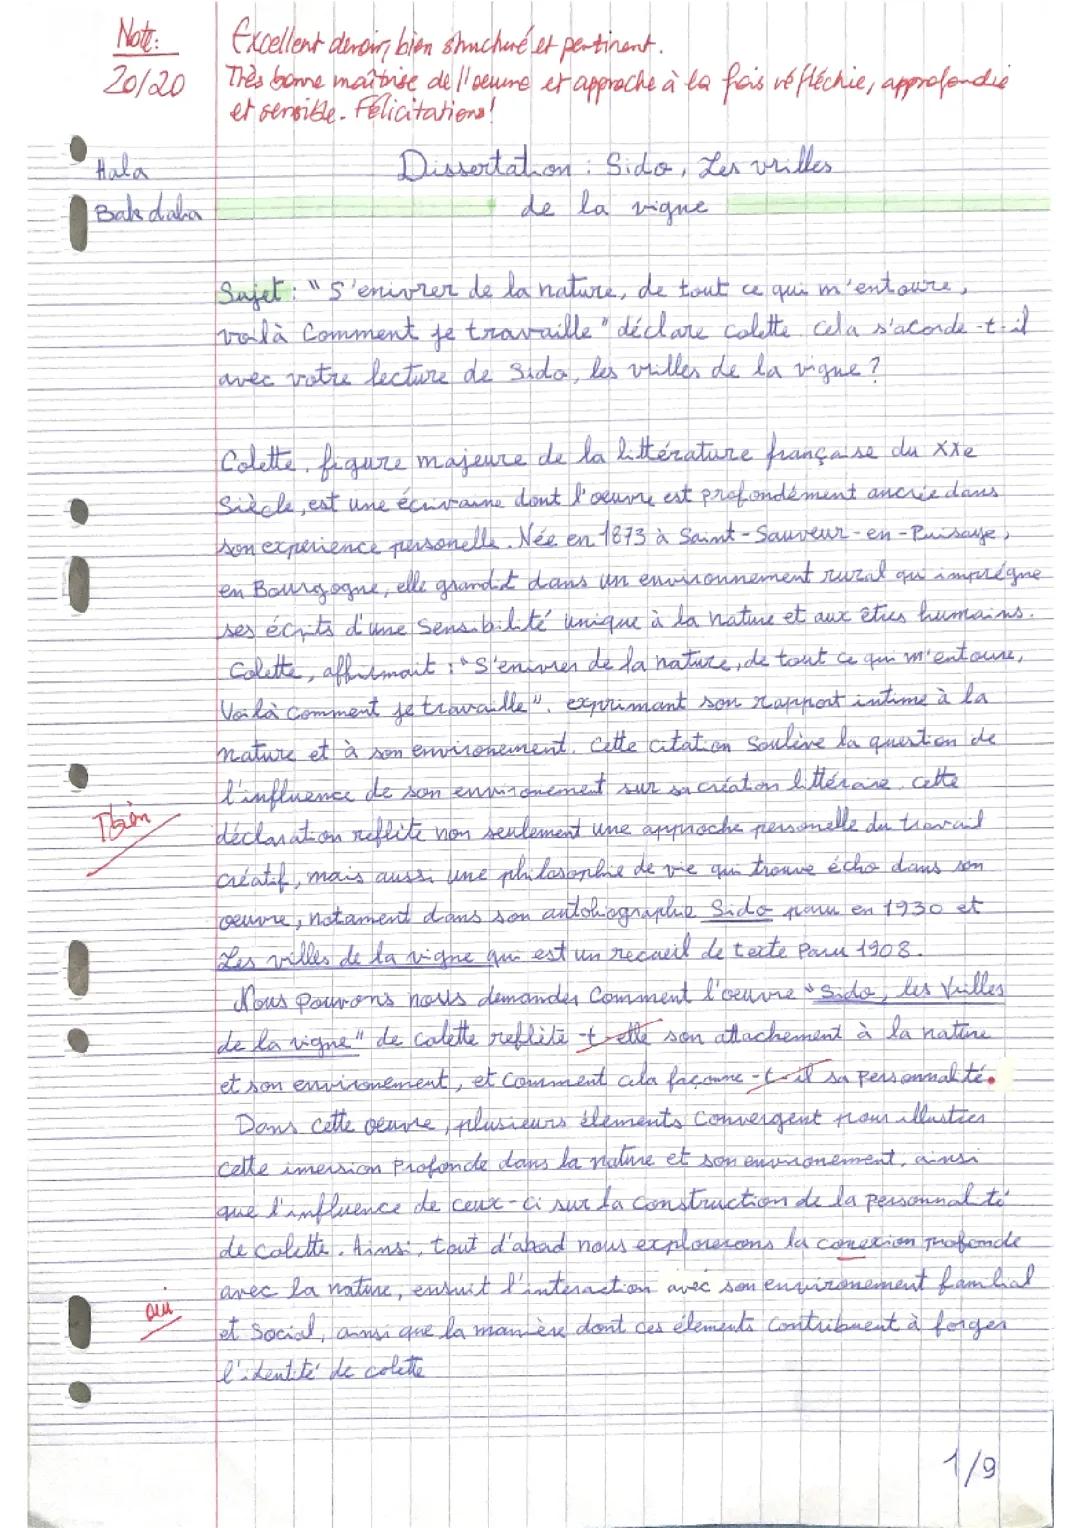 Note:
20/20
Excellent devoir, bien structuré et pertinent.
Très bonne maîtrise de l'oeuvre et approche à la fois réfléchie, approfondie
et sensible. Félicitations!
Hala
Dissertation : Sido, Les vrilles
de la vigne
Sujet : "S'enivrer de la nature, de tout ce qui m'entoure,
voilà Comment je travaille" déclare colette. cela s'acorde-t-il
avec votre lecture de Sido, les vrilles de la vigne ?
Colette, figure majeure de la littérature française du XXe
Siècle, est une écrivaine dont l'oeuvre est profondément ancrée dans
son experience personelle. Née en 1873 à Saint-Sauveur-en-Puisaye,
en Bourgogne, elle grandit dans un environnement rural qui imprégne
ses écrits d'une Sensibilité unique à la nature et aux êtres humains.
Colette, affirmait : "S'enivrer de la nature, de tout ce qui m'entoure,
Voilà comment je travaille". exprimant son rapport intime à la
nature et à son environement. Cette citation Soulève la question de
l'influence de son environement sur sa création littéraire. cette
déclaration reflète non seulement une approche personelle du travail
Tbien
créatif, mais aussi une philosophie de vie qui trouve écho dans son
oeuvre, notament dans son autobiographie Sido paru en 1930 et
Les villes de la vigne qui est un recueil de texte Paru 1908.
Nous pouvons nous demander Comment l'oeuvre "Sido, les Vrilles
de la vigne" de colette reflète -t-elle son attachement à la nature
et son environement, et Comment cela façonne -t-il sa personnalité.
Dans cette oeuvre, plusieurs élements Convergent pour illustrer
cette imersion Profonde dans la nature et son environement, ainsi
que l'influence de ceux-ci sur la construction de la personnalité
de colette. Ainsi, tout d'abord nous explorerons la conexion profonde
avec la nature, ensuit l'interaction avec son environement familial
oui
et Social, ainsi que la manière dont ces élements Contribuent à forger
l'identité de colette
1/9